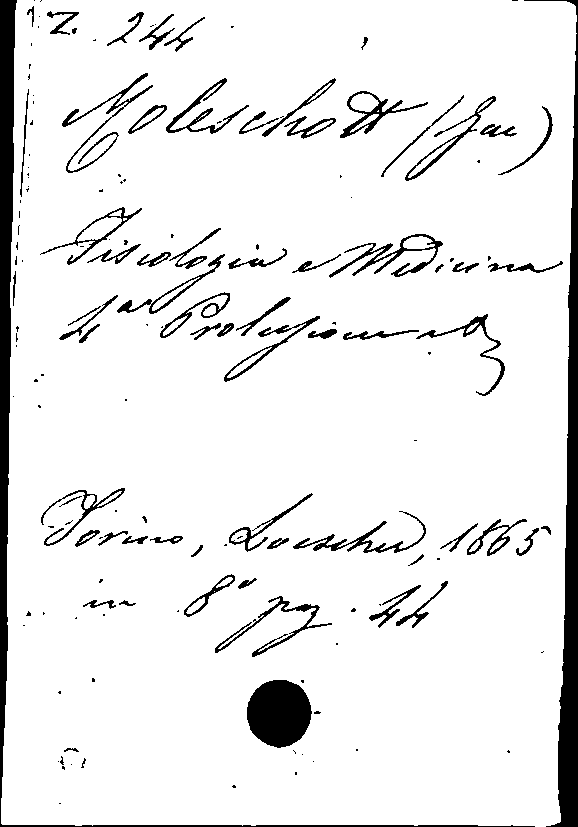 Z. 244
Moleschott (Jac)
Fisiologia e Medicina
4ª Prolusione
Torino, Loescher, 1865
in 8º pag. 44